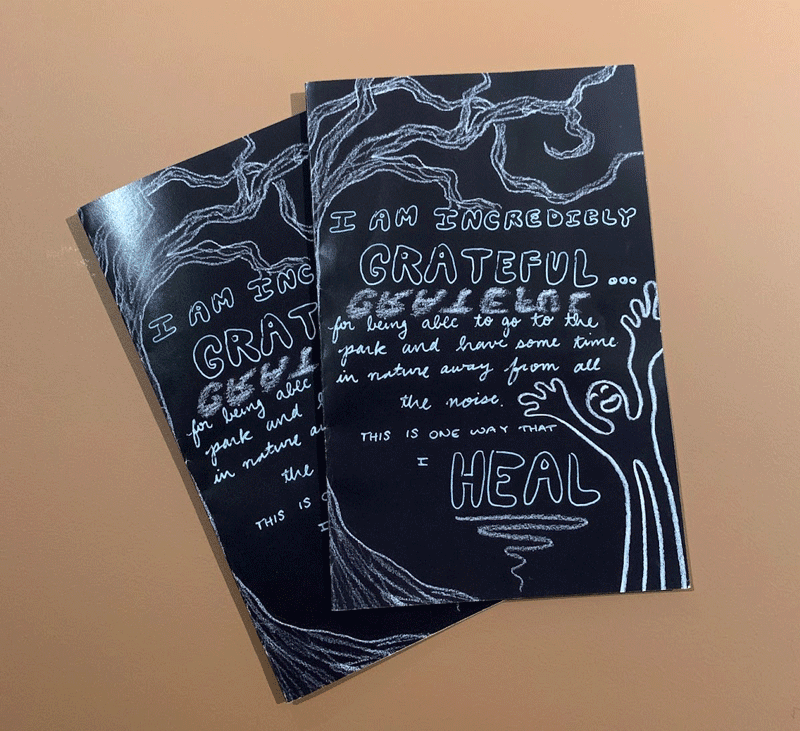 I AM INCREDIBLY
GRATEFUL...
GRATEFUL
for being able to go to the
park and have some time
in nature away from all
the noise.
THIS IS ONE WAY THAT
I
HEAL
I AM INC
GRAT
GRAT
for being able
park and
in nature
the
THIS IS
I